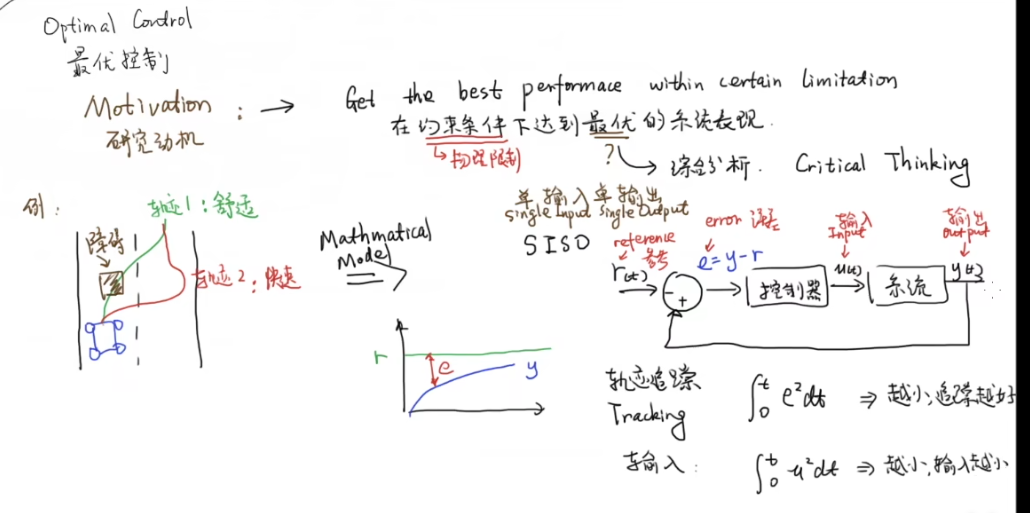 Optimal Control
最优控制
Motivation : →
研究动机
Get the best performace within certain limitation
在约束条件下达到最优的系统表现.
↳物理限制
? → 综合分析. Critical Thinking
例:
轨迹1:舒适
障碍
轨迹2:快速
Mathmatical
Model
单输入单输出
single Input single Output
SISO
reference
参考
r(t)
error 误差
e=y-r
- +
控制器
输入
Input
u(t)
系统
输出
output
y(t)
r
e
y
轨迹追踪
Tracking
∫₀ᵗ e²dt ⇒ 越小,追踪越好
输入:
∫₀ᵗ u²dt ⇒ 越小,输入越小